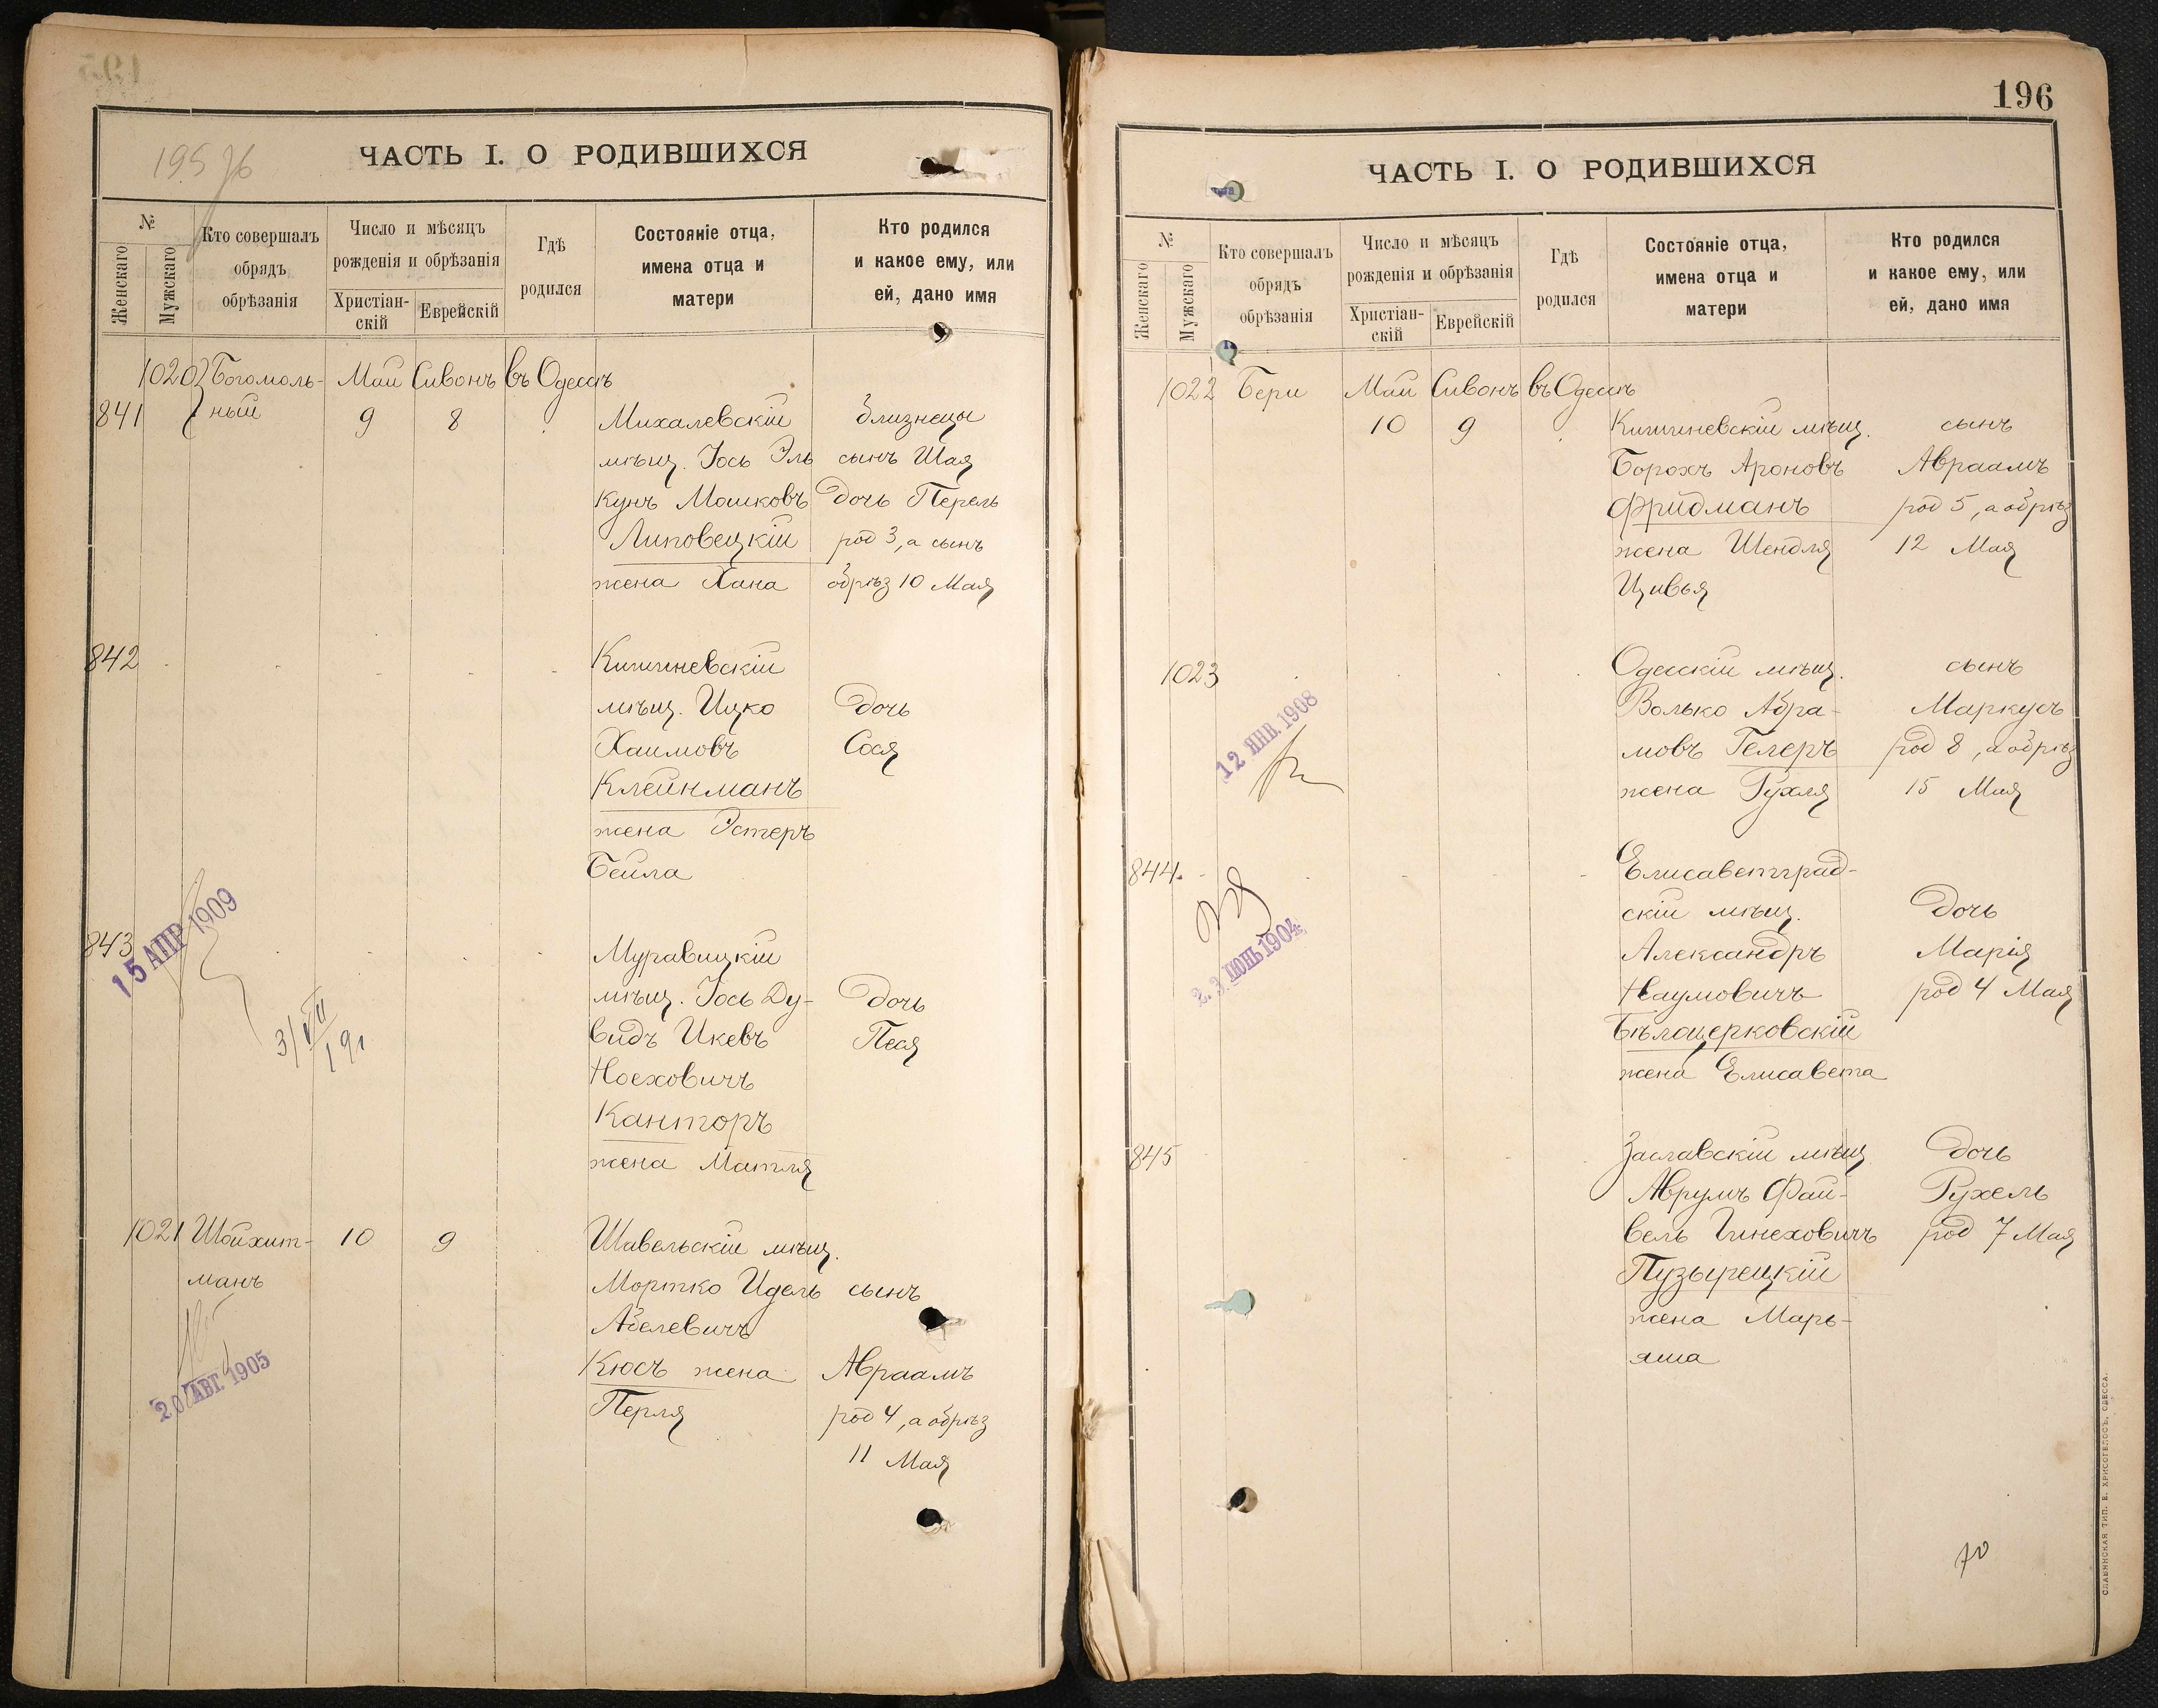 195 об
ЧАСТЬ I. О РОДИВШИХСЯ
№
Женскаго
Мужскаго
Кто совершалъ
обрядъ
обрѣзанія
Число и мѣсяцъ
рожденія и обрѣзанія
Христіан-
скій
Еврейскій
Гдѣ
родился
Состояніе отца,
имена отца и
матери
Кто родился
и какое ему, или
ей, дано имя
1020 Богомоль- Май Сивонъ въ Одессѣ
841 ный 9 8 Михалевскій близнецы
мѣщ. Іось Эль сынъ Шая
кунъ Мошковъ дочь Перель
Липовецкій род 3, а сынъ
жена Хана обрѣз 10 Мая
842 Кишиневскій
мѣщ. Ицко дочь
Хаимовъ Сося
Клейнманъ
жена Эстеръ
Бейла
843 Муравицкій
15 АПР 1909
мѣщ. Іось Ду- дочь
видъ Икевъ Песя
Ноеховичъ
Канторъ
жена Матля
1021 Шойхит- 10 9 Шавельскій мѣщ.
манъ Мортко Идель сынъ
Абелевичъ
20 АВГ. 1905
Кюсъ жена Авраамъ
Перля род 4, а обрѣз
11 Мая
196
ЧАСТЬ I. О РОДИВШИХСЯ
№
Женскаго
Мужскаго
Кто совершалъ
обрядъ
обрѣзанія
Число и мѣсяцъ
рожденія и обрѣзанія
Христіан-
скій
Еврейскій
Гдѣ
родился
Состояніе отца,
имена отца и
матери
Кто родился
и какое ему, или
ей, дано имя
1022 Бери Май Сивонъ въ Одессѣ
10 9 Кишиневскій мѣщ. сынъ
Борохъ Ароновъ Авраамъ
Фридманъ род 5, а обрѣз
жена Шендля 12 Мая
Цивья
1023 Одесскій мѣщ. сынъ
12 ЯНВ. 1908
Волько Абра- Маркусъ
мовъ Гелеръ род 8, а обрѣз
жена Рухля 15 Мая
844. Елисаветград-
скій мѣщ. дочь
23 ІЮНЬ 1904
Александръ Марія
Наумовичъ род 4 Мая
Бѣлоцерковскій
жена Елисавета
845 Заславскій мѣщ дочь
Аврумъ Фай- Рухель
вель Гинеховичъ род 7 Мая
Пузырецкій
жена Марь-
яша
СЛАВЯНСКАЯ ТИП. Е. ХРИСОГЕЛОСЪ, ОДЕССА.